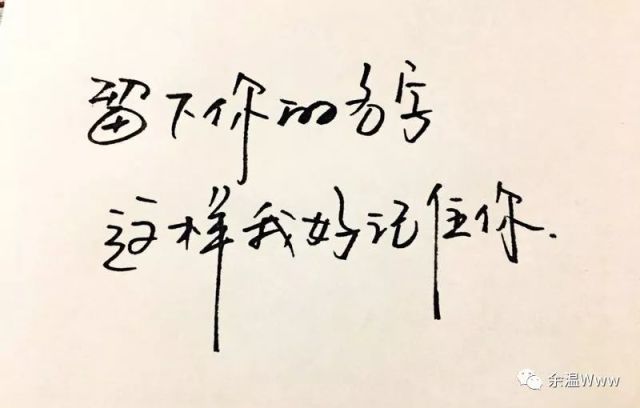 留下你的名字
这样我好记住你.
余温Www